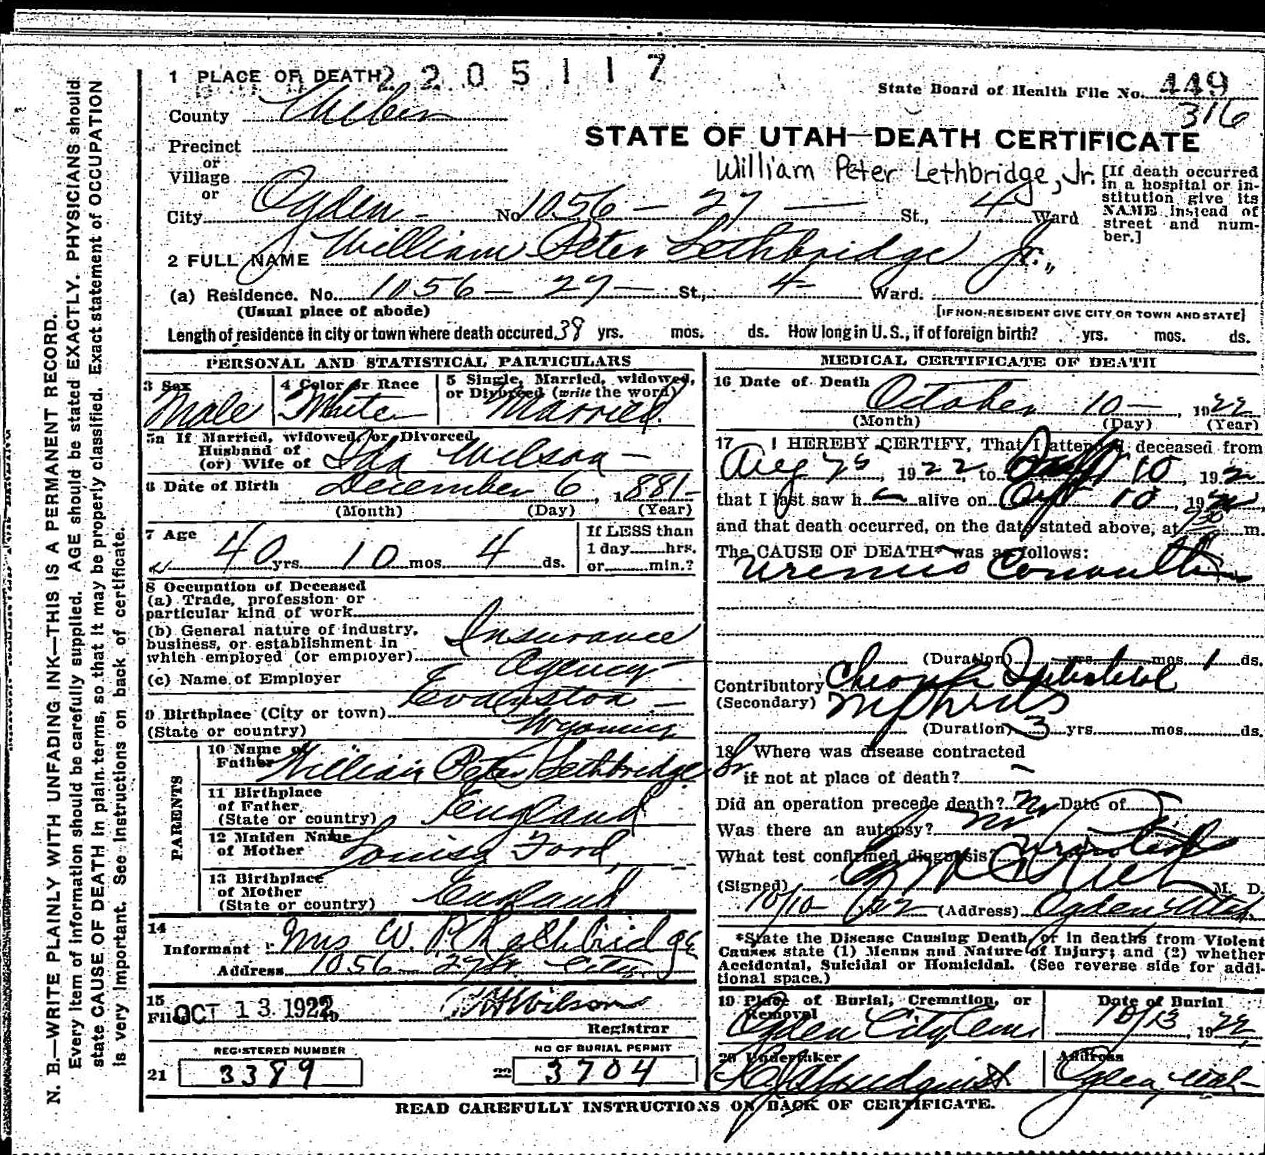 1 PLACE OF DEATH 2 2 0 5 1 1 7
State Board of Health File No. 449
316
County Weber
STATE OF UTAH—DEATH CERTIFICATE
Precinct
or
Village
or
William Peter Lethbridge, Jr.
[If death occurred in a hospital or institution give its NAME instead of street and number.]
City Ogden - No 1056 - 27 — St., 4 Ward
2 FULL NAME William Peter Lethbridge Jr.,
(a) Residence. No. 1056 — 27 — St., 4 Ward.
(Usual place of abode) [IF NON-RESIDENT GIVE CITY OR TOWN AND STATE]
Length of residence in city or town where death occured 38 yrs. mos. ds. How long in U.S., if of foreign birth? yrs. mos. ds.
PERSONAL AND STATISTICAL PARTICULARS
3 Sex
Male
4 Color or Race
White
5 Single, Married, widowed,
or Divorced (write the word)
Married
5a If Married, widowed, or Divorced
Husband of
(or) Wife of Ida Wilson —
6 Date of Birth December 6, 1881-
(Month) (Day) (Year)
7 Age
40 yrs. 10 mos. 4 ds.
If LESS than
1 day hrs.
or min.?
8 Occupation of Deceased
(a) Trade, profession or
particular kind of work
(b) General nature of industry,
business, or establishment in
which employed (or employer) Insurance
Agency
(c) Name of Employer
9 Birthplace (City or town) Evanston —
(State or country) Wyoming
PARENTS
10 Name of
Father William Peter Lethbridge Sr
11 Birthplace
of Father
(State or country) England
12 Maiden Name
of Mother Louisa Ford
13 Birthplace
of Mother
(State or country) England
14
Informant Mrs W. P. Lethbridge
Address 1056 27 St. City
15
Filed OCT 13 1922
Wilson
Registrar
REGISTERED NUMBER
21 3389
NO OF BURIAL PERMIT
22 3704
MEDICAL CERTIFICATE OF DEATH
16 Date of Death October 10 —, 1922
(Month) (Day) (Year)
17 I HEREBY CERTIFY, That I attended deceased from
Aug 1922, to 10, 192
that I last saw h alive on Oct 10, 192
and that death occurred, on the date stated above, at m.
The CAUSE OF DEATH* was as follows:
(Duration) yrs. mos. 1 ds.
Contributory Chronic
(Secondary) Nephritis
(Duration) 3 yrs. mos. ds.
18 Where was disease contracted
if not at place of death? —
Did an operation precede death? No Date of
Was there an autopsy? No
What test confirmed diagnosis
(Signed) M. D.
10/10 1922 (Address) Ogden Utah
*State the Disease Causing Death, or in deaths from Violent
Causes state (1) Means and Nature of Injury; and (2) whether
Accidental, Suicidal or Homicidal. (See reverse side for addi-
tional space.)
19 Place of Burial, Cremation, or
Removal
Ogden City Cem
Date of Burial
10/13, 1922
20 Undertaker
Lindquist
Address
Ogden, Utah
READ CAREFULLY INSTRUCTIONS ON BACK OF CERTIFICATE.
N. B.—WRITE PLAINLY WITH UNFADING INK—THIS IS A PERMANENT RECORD.
Every item of information should be carefully supplied. AGE should be stated EXACTLY. PHYSICIANS should
state CAUSE OF DEATH in plain terms, so that it may be properly classified. Exact statement of OCCUPATION
is very important. See instructions on back of certificate.